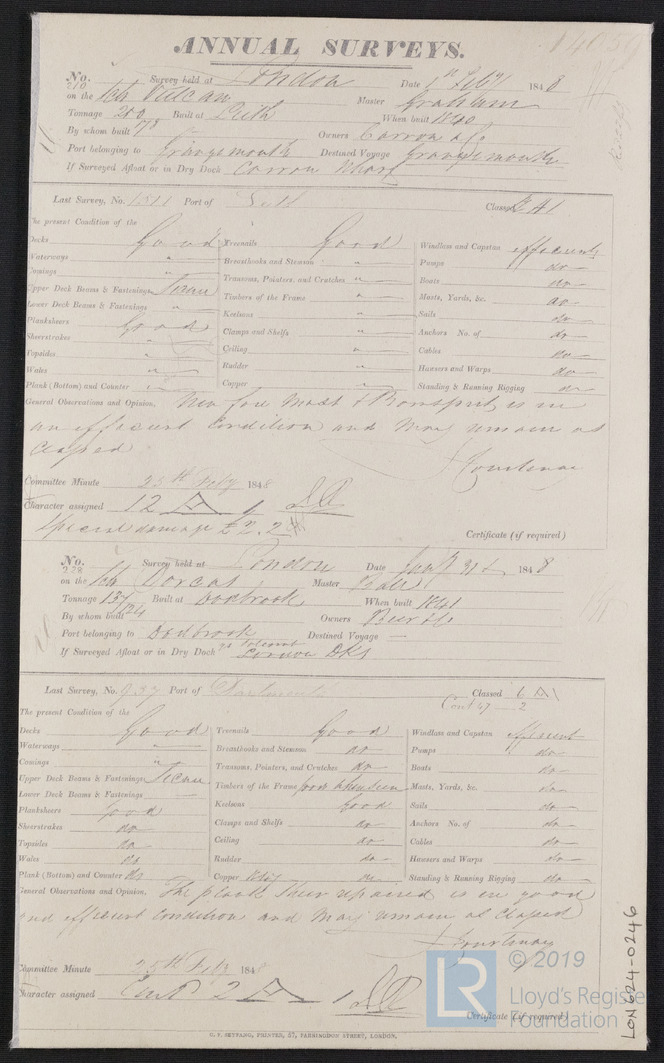 ANNUAL SURVEYS.
No. 210 Survey held at London Date 1st Feby 1848
on the Sch Vulcan Master Graham
Tonnage 200 Built at Leith When built 1840
By whom built Owners Carron & Co
Port belonging to Grangemouth Destined Voyage Grangemouth
If Surveyed Afloat or in Dry Dock Carron Wharf
Last Survey, No. 1511 Port of Leith Classed A1
The present Condition of the
Decks Good Treenails Good Windlass and Capstan efficient
Waterways " Breasthooks and Stemson " Pumps do
Comings " Transoms, Pointers, and Crutches " Boats do
Upper Deck Beams & Fastenings Secure Timbers of the Frame " Masts, Yards, &c. do
Lower Deck Beams & Fastenings " Keelsons " Sails do
Planksheers Good Clamps and Shelfs " Anchors No. of do
Sheerstrakes " Ceiling " Cables do
Topsides " Rudder " Hawsers and Warps do
Wales " Copper " Standing & Running Rigging do
Plank (Bottom) and Counter "
General Observations and Opinion. New fore Mast & Bowsprit, is in
an efficient Condition and May remain as
Classed
J Courtenay
Committee Minute 25th Feby 1848
Character assigned 12 A 1
Special damage £2.2
Certificate (if required)
No. 228 Survey held at London Date Jany 31st 1848
on the Sch Dorcas Master Ball
Tonnage 137/124 Built at Dodbrook When built 1841
By whom built Owners Beer & Co
Port belonging to Dodbrook Destined Voyage —
If Surveyed Afloat or in Dry Dock London Dks
Last Survey, No. 937 Port of Classed 6 A 1
Cont 47 — 2
The present Condition of the
Decks Good Treenails Good Windlass and Capstan efficient
Waterways " Breasthooks and Stemson do Pumps do
Comings " Transoms, Pointers, and Crutches do Boats do
Upper Deck Beams & Fastenings Secure Timbers of the Frame Masts, Yards, &c. do
Lower Deck Beams & Fastenings — Keelsons Good Sails do
Planksheers Good Clamps and Shelfs do Anchors No. of do
Sheerstrakes do Ceiling do Cables do
Topsides do Rudder do Hawsers and Warps do
Wales do Copper do Standing & Running Rigging do
Plank (Bottom) and Counter do
General Observations and Opinion. The plank Sheer repaired is in good
and efficient Condition and May remain as Classed
J Courtenay
Committee Minute 25th Feby 184
Character assigned Cont 2 A 1
Certificate (if required)
G. F. SEYFANG, PRINTER, 57, FARRINGDON STREET, LONDON.
LON 624-0246
LR
© 2019
Lloyd's Register
Foundation